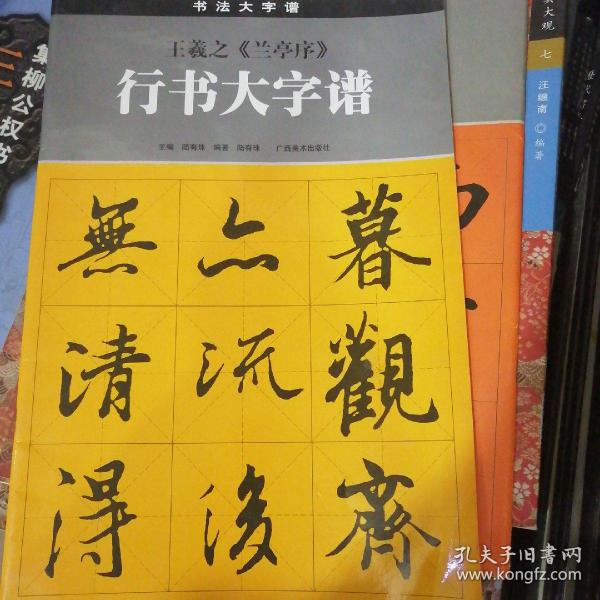 书法大字谱
王羲之《兰亭序》
行书大字谱
主编 陆有珠 编著 陆有珠 广西美术出版社
無 亦 暮
清 流 觀
得 後 齊
集柳公权书
大观
七
汪继南
编著
孔夫子旧书网
www.kongfz.com